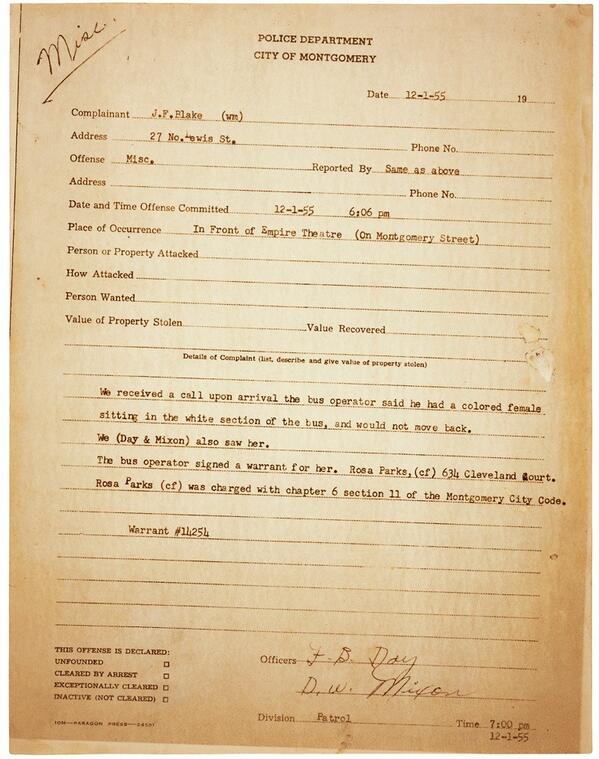 Misc.
POLICE DEPARTMENT
CITY OF MONTGOMERY
Date 12-1-55 19
Complainant J.F.Blake (wm)
Address 27 No.Lewis St. Phone No.
Offense Misc. Reported By Same as above
Address Phone No.
Date and Time Offense Committed 12-1-55 6:06 pm
Place of Occurrence In Front of Empire Theatre (On Montgomery Street)
Person or Property Attacked
How Attacked
Person Wanted
Value of Property Stolen Value Recovered
Details of Complaint (list, describe and give value of property stolen)
We received a call upon arrival the bus operator said he had a colored female
sitting in the white section of the bus, and would not move back.
We (Day & Mixon) also saw her.
The bus operator signed a warrant for her. Rosa Parks,(cf) 634 Cleveland Court.
Rosa Parks (cf) was charged with chapter 6 section 11 of the Montgomery City Code.
Warrant #14254
THIS OFFENSE IS DECLARED:
UNFOUNDED
CLEARED BY ARREST
EXCEPTIONALLY CLEARED
INACTIVE (NOT CLEARED)
Officers F. B. Day
D. W. Mixon
Division Patrol Time 7:00 pm
12-1-55
10M—PARAGON PRESS—24501